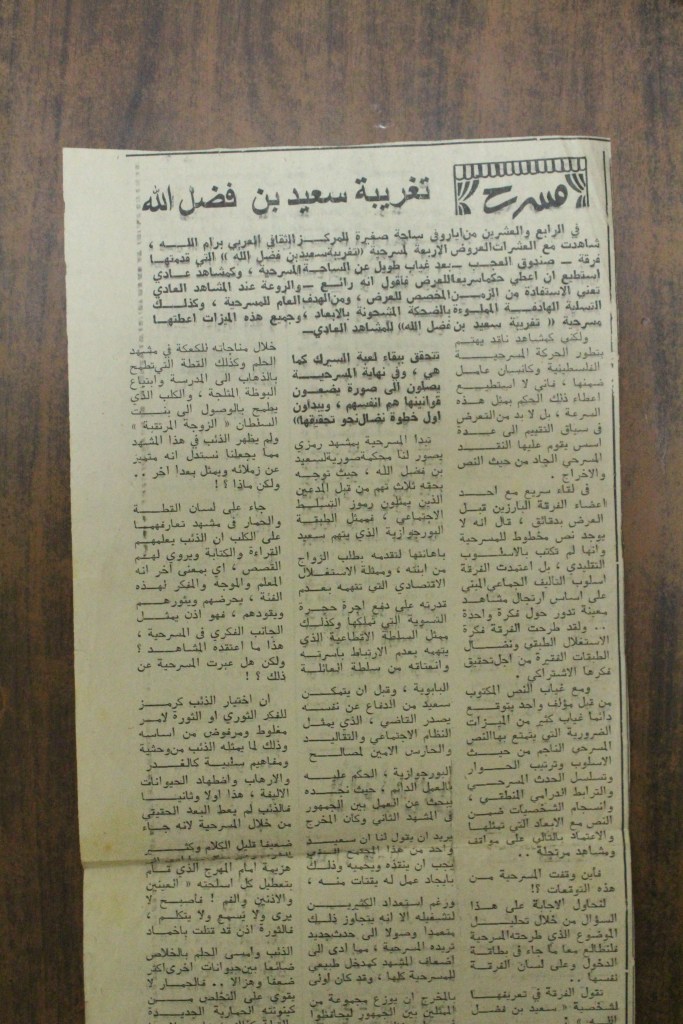 مسرح
تغريبة سعيد بن فضل الله
في الرابع والعشرين من ايار وفي ساحة صغيرة للمركز الثقافي العربي برام الله ،
شاهدت مع العشرات العروض الاربعة لمسرحية «تغريبة سعيد بن فضل الله » التي قدمتها
فرقة ــ صندوق العجب ــ بعد غياب طويل عن الساحة المسرحية ، وكمشاهد عادي
استطيع ان اعطي حكما سريعا للعرض فأقول انه رائع ــ والروعة عند المشاهد العادي
تعني الاستفادة من الزمن المخصص للعرض ، ومن الهدف العام للمسرحية ، وكذلك
التسلية الهادفة المملوءة بالضحكة المشحونة بالابعاد ، وجميع هذه الميزات اعطتها
مسرحية « تغريبة سعيد بن فضل الله» للمشاهد العادي..
ولكني كمشاهد ناقد يهتم
بتطور الحركة المسرحية
الفلسطينية وكانسان عامل
ضمنها ، فاني لا استطيع
اعطاء ذلك الحكم بمثل هذه
السرعة ، بل لا بد من التعرض
في سياق التقييم الى عدة
اسس يقوم عليها النقد
المسرحي الجاد من حيث النص
والاخراج .
في لقاء سريع مع احد
اعضاء الفرقة البارزين قبل
العرض بدقائق ، قال انه لا
يوجد نص مخطوط للمسرحية
وانها لم تكتب بالاسلوب
التقليدي ، بل اعتمدت الفرقة
اسلوب التأليف الجماعي المبني
على اساس ارتجال مشاهد
معينة تدور حول فكرة واحدة
.. ولقد طرحت الفرقة فكرة
الاستغلال الطبقي ونضال
الطبقات الفقيرة من اجل تحقيق
فكرها الاشتراكي .
ومع غياب النص المكتوب
من قبل مؤلف واحد يتوقع
دائما غياب كثير من الميزات
الضرورية التي يتمتع بها النص
المسرحي الناجح من حيث
الاسلوب وترتيب الحوار
وتسلسل الحدث المسرحي
والترابط الدرامي المنطقي ،
وانسجام الشخصيات ضمن
النص مع الابعاد التي تمثلها
والاعتماد بالتالي على مواقف
ومشاهد مرتجلة ..
فأين وقفت المسرحية من
هذه التوقعات ؟!
لنحاول الاجابة على هذا
السؤال من خلال تحليل
الموضوع الذي طرحته المسرحية
فلنطالع معا ما جاء في بطاقة
الدخول وعلى لسان الفرقة
نفسها ..
تقول الفرقة في تعريفها
لشخصية « سعيد بن فضل
تتحقق ببقاء لعبة السيرك كما
هي ، وفي نهاية المسرحية
يصلون الى صورة يضعون
قوانينها هم انفسهم ، ويبداون
اول خطوة نضال نحو تحقيقها»
تبدأ المسرحية بمشهد رمزي
يصور لنا محكمة صورية لسعيد
بن فضل الله ، حيث توجه
بحقه ثلاث تهم من قبل المدعين
الذين يمثلون رموز التسلط
الاجتماعي ، فممثل الطبقة
البورجوازية الذي يتهم سعيد
باهانتها لتقدمه بطلب الزواج
من ابنته ، وممثلة الاستغلال
الاقتصادي التي تتهمه بعدم
قدرته على دفع اجرة حجرة
التسوية التي تملكها وكذلك
ممثل السلطة الاقطاعية الذي
يتهمه بعدم الارتباط بأسرته
وانفتاته من سلطة العائلة
البابوية ، وقبل ان يتمكن
سعيد من الدفاع عن نفسه
يصدر القاضي ، الذي يمثل
النظام الاجتماعي والتقاليد
والحارس الامين لمصالح
البورجوازية ، الحكم عليه
بالعمل الدائم ، حيث نجده
يبحث عن العمل بين الجمهور
في المشهد الثاني وكان المخرج
يريد ان يقول لنا ان سعيد
واحد من هذا المجتمع الذي
يجب ان ينقذه ويحميه وذلك
بايجاد عمل له يقتات منه ،
ورغم استعداد الكثيرين
لتشغيله الا انه يتجاوز ذلك
متعمدا وصولا الى حدث جديد
تريده المسرحية ، مما ادى الى
اضعاف المشهد كمدخل طبيعي
للمسرحية كلها ، وقد كان اولى
بالمخرج ان يوزع مجموعة من
الممثلين بين الجمهور ليحافظوا
خلال مناجاته للكعكة في مشهد
الحلم وكذلك القطة التي تطمح
بالذهاب الى المدرسة وابتياع
البوظة المثلجة ، والكلب الذي
يطمح بالوصول الى بنت
السلطان « الزوجة المرتقبة »
ولم يظهر الذئب في هذا المشهد
مما يجعلنا نستدل انه متميز
عن زملائه ويمثل بعدا آخر ..
ولكن ماذا ؟ !
جاء على لسان القطة
والحمار في مشهد تعارفهما
على الكلب ان الذئب يعلمهم
القراءة والكتابة ويروي لهم
القصص ، اي بمعنى آخر انه
المعلم والموجه والمفكر لهذه
الفئة ، يحرضهم ويثورهم
ويقودهم ، فهو اذن يمثل
الجانب الفكري في المسرحية ،
هذا ما اعتقده المشاهد ؟
ولكن هل عبرت المسرحية عن
ذلك ؟ !
ان اختيار الذئب كرمز
للفكر الثوري او الثورة لامر
مغلوط ومرفوض من اساسه
وذلك لما يمثله الذئب من وحشية
ومفاهيم سلبية كالغدر
والارهاب واضطهاد الحيوانات
الاليفة ، هذا اولا وثانيا
فالذئب لم يعط البعد الحقيقي
من خلال المسرحية لانه جاء
ضعيفا قليل الكلام وكثير
هزيمة أمام المهرج الذي قام
بتعطيل كل اسلحته « العينين
والاذنين والفم ! فأصبح لا
يرى ولا يسمع ولا يتكلم ،
فالثورة اذن قد قتلت باخماد
الذئب وامسى الحلم بالخلاص
ضائعا بين حيوانات اخرى اكثر
ضعفا وهزالا .. فالحمار لا
يقوى على التخلص من
كينونته الحمارية الجديدة